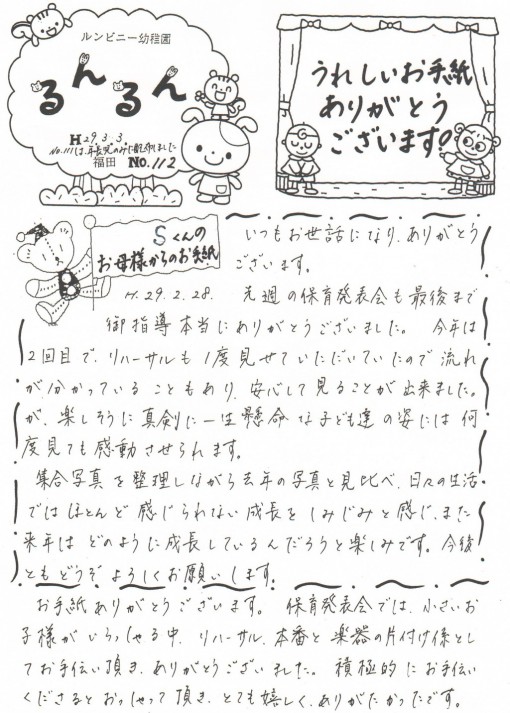 ルンビニー幼稚園
るんるん
H29.3.3.
No.111は年長児のみに配布しました
福田 No.112
うれしいお手紙
ありがとう
ございます。
Sくんの
お母様からのお手紙
いつもお世話になり、ありがとう
ございます。
H.29.2.28. 先週の保育発表会も最後まで
御指導本当にありがとうございました。 今年は
2回目で、リハーサルも1度見せていただいていたので流れ
が分かっていることもあり、安心して見ることが出来ました。
が、楽しそうに真剣に一生懸命な子ども達の姿には何
度見ても感動させられます。
集合写真を整理しながら去年の写真と見比べ、日々の生活
ではほとんど感じられない成長をしみじみと感じ、また
来年はどのように成長しているんだろうと楽しみです。今後
ともどうぞよろしくお願いします。
お手紙ありがとうございます。 保育発表会では、小さいお
子様がいらっしゃる中、リハーサル、本番と楽器の片付け係とし
てお手伝い頂き、ありがとうございました。 積極的にお手伝い
くださるとおっしゃって頂き、とても嬉しく、ありがたかったです。